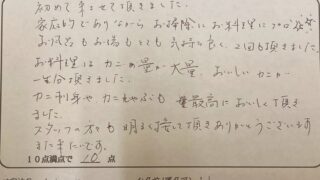 初めて来させて頂きました。
家庭的でありながら お掃除に お料理に プロ
お風呂もお湯もとても気持ち良く、2回も頂きました。
お料理は カニの量が大量、おいしいカニを
一年分頂きました。
カニ刺身や カニしゃぶも 最高においしく頂き
ました。
スタッフの方も 明るく接して頂きありがとうございます
また来たいです。
10点満点で 10 点